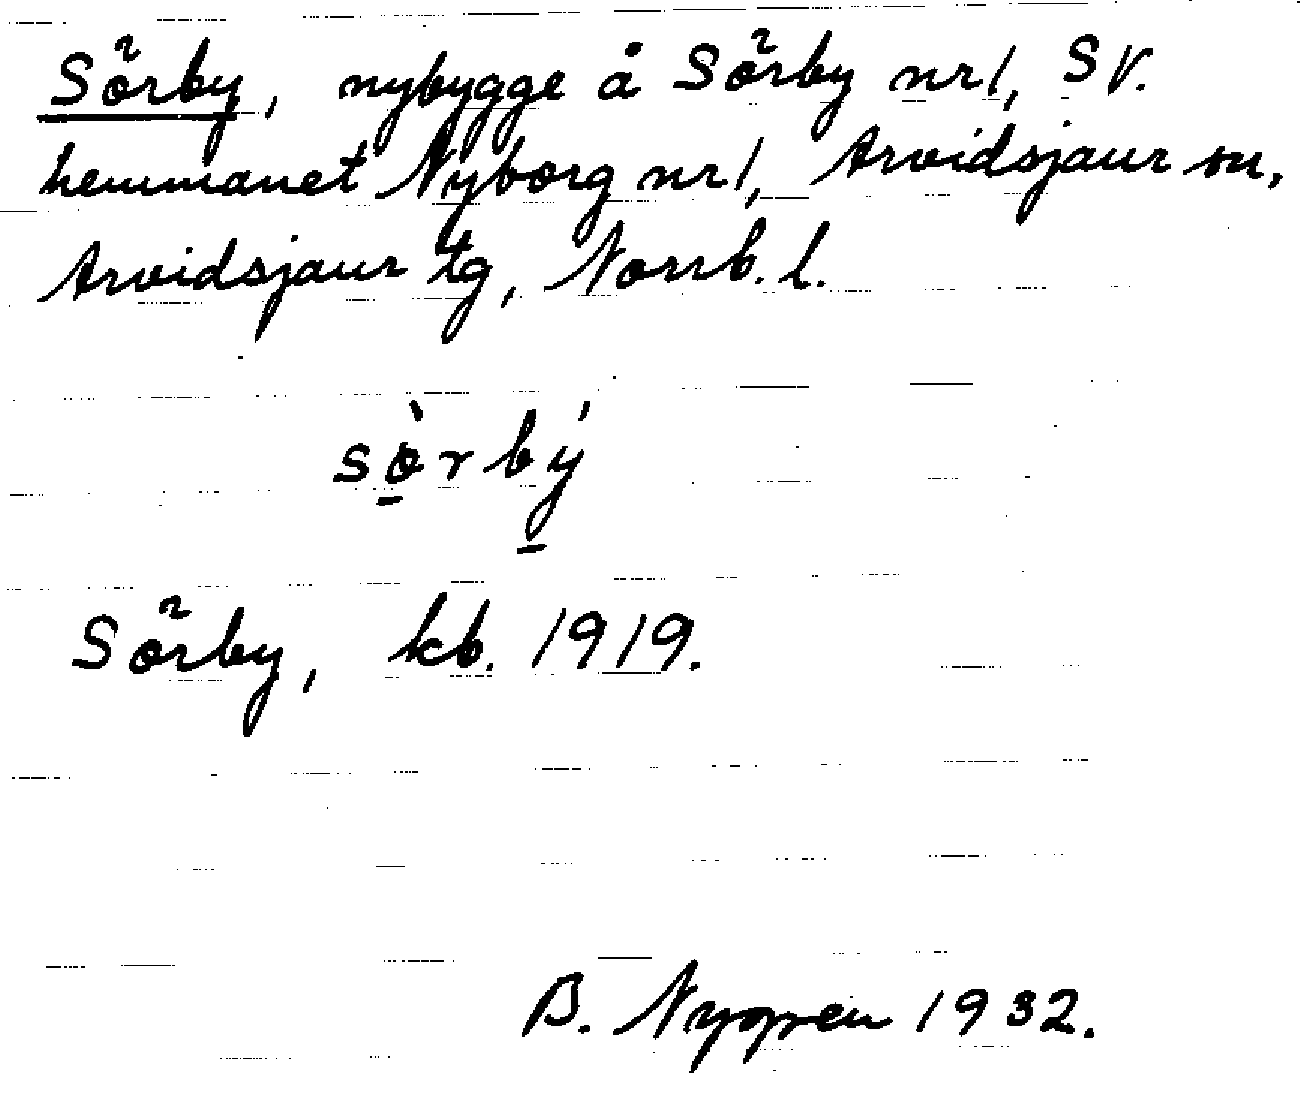 Sörby, nybygge å Sörby nr 1, SV.
hemmanet Nyborg nr 1, Arvidsjaur sn,
Arvidsjaur tg, Norrb. l.
sö̀rbý
Sörby, kb. 1919.
B. Nygren 1932.